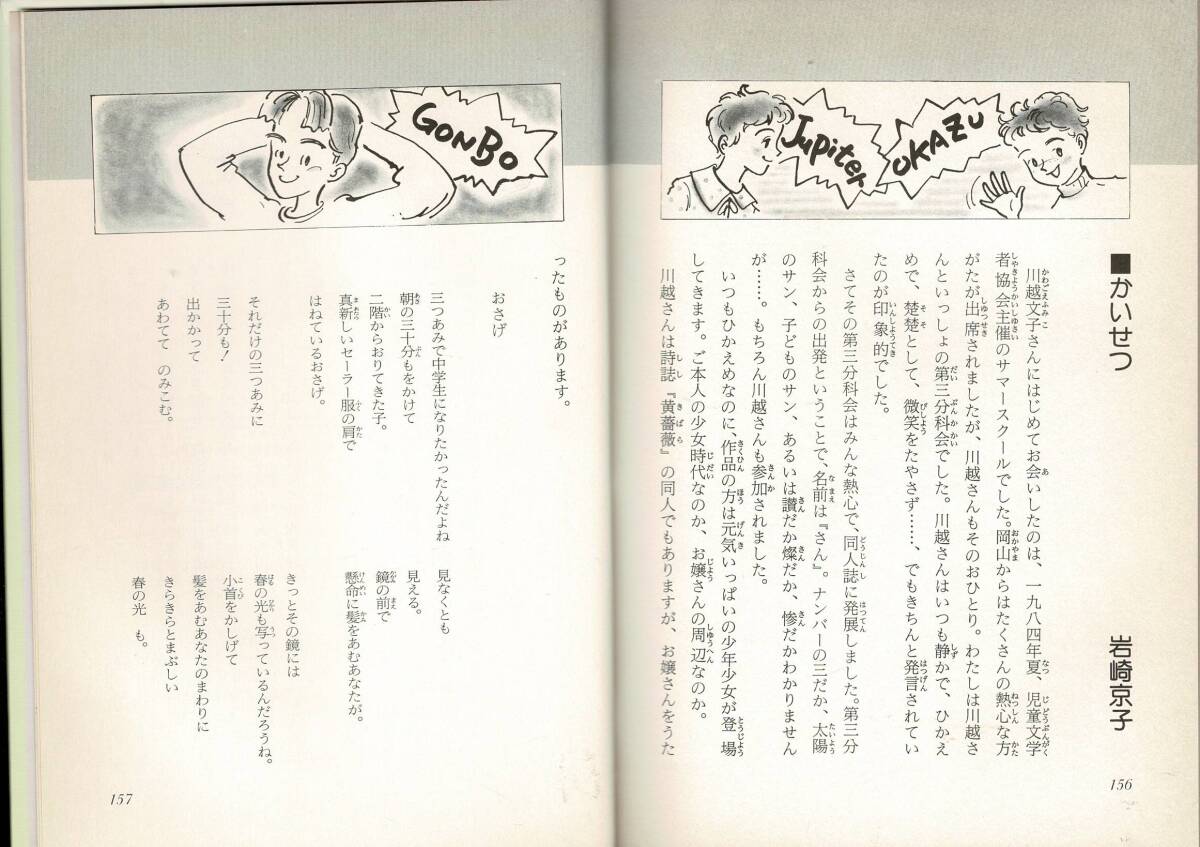 Jupiter
OKAZU
■かいせつ
岩崎京子
川越文子さんにはじめてお会いしたのは、一九八四年夏、児童文学
者協会主催のサマースクールでした。岡山からはたくさんの熱心な方
がたが出席されましたが、川越さんもそのおひとり。わたしは川越さ
んといっしょの第三分科会でした。川越さんはいつも静かで、ひかえ
めで、楚楚として、微笑をたやさず……、でもきちんと発言されてい
たのが印象的でした。
さてその第三分科会はみんな熱心で、同人誌に発展しました。第三分
科会からの出発ということで、名前は『さん』。ナンバーの三だか、太陽
のサン、子どものサン、あるいは讃だか燦だか、惨だかわかりません
が……。もちろん川越さんも参加されました。
いつもひかえめなのに、作品の方は元気いっぱいの少年少女が登場
してきます。ご本人の少女時代なのか、お嬢さんの周辺なのか。
川越さんは詩誌『黄薔薇』の同人でもありますが、お嬢さんをうた
156
GONBO
ったものがあります。
おさげ
三つあみで中学生になりたかったんだよね
朝の三十分もをかけて
二階からおりてきた子。
真新しいセーラー服の肩で
はねているおさげ。
それだけの三つあみに
三十分も!
出かかって
あわてて のみこむ。
見なくとも
見える。
鏡の前で
懸命に髪をあむあなたが。
きっとその鏡には
春の光も写っているんだろうね。
小首をかしげて
髪をあむあなたのまわりに
きらきらとまぶしい
春の光 も。
157